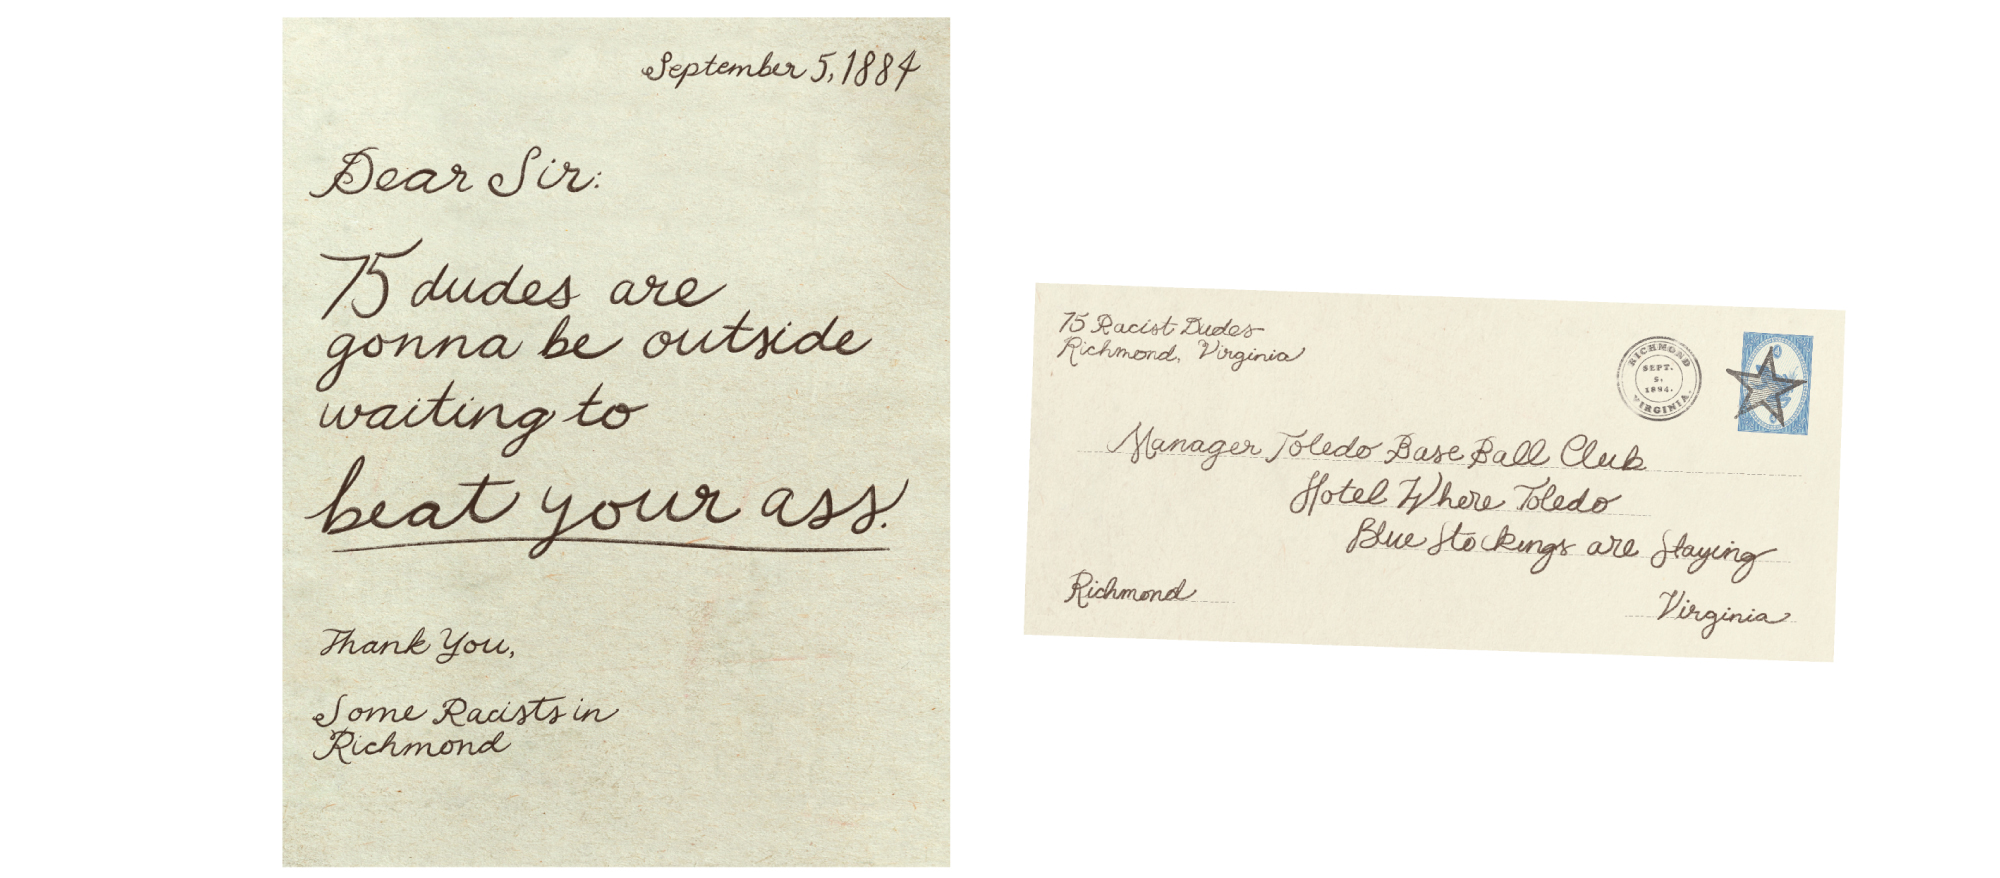 September 5, 1884
Dear Sir:
75 dudes are
gonna be outside
waiting to
beat your ass.
Thank You,
Some Racists in
Richmond
75 Racist Dudes
Richmond, Virginia
RICHMOND
SEPT.
5,
1884.
VIRGINIA.
Manager Toledo Base Ball Club
Hotel Where Toledo
Blue Stockings are Staying
Richmond
Virginia